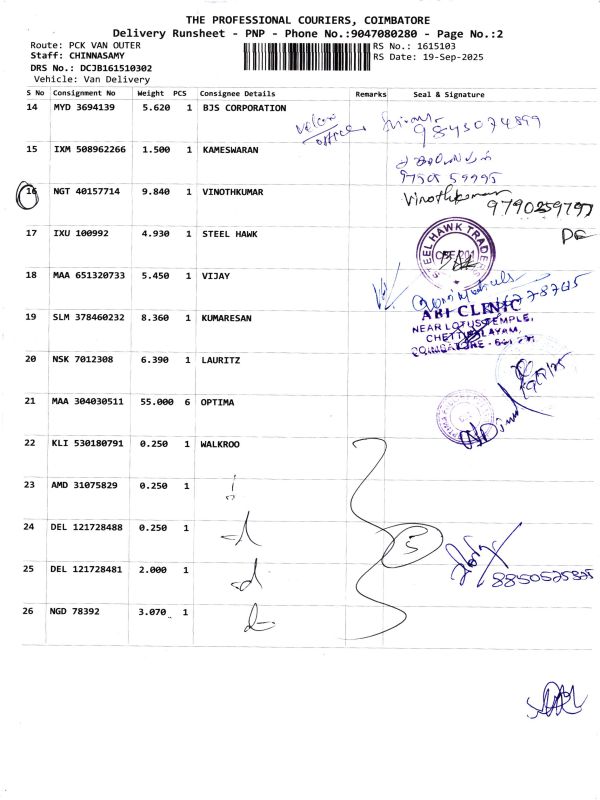 THE PROFESSIONAL COURIERS, COIMBATORE
Delivery Runsheet - PNP - Phone No.:9047080280 - Page No.:2
Route: PCK VAN OUTER RS No.: 1615103
Staff: CHINNASAMY RS Date: 19-Sep-2025
DRS No.: DCJB161510302
Vehicle: Van Delivery
S No Consignment No Weight PCS Consignee Details Remarks Seal & Signature
14 MYD 3694139 5.620 1 BJS CORPORATION
office 9843074899
15 IXM 508962266 1.500 1 KAMESWARAN
16 NGT 40157714 9.840 1 VINOTHKUMAR Vinothkumar
17 IXU 100992 4.930 1 STEEL HAWK STEEL HAWK TRADERS
18 MAA 651320733 5.450 1 VIJAY
19 SLM 378460232 8.360 1 KUMARESAN ABI CLINIC
NEAR LOTUS TEMPLE,
20 NSK 7012308 6.390 1 LAURITZ
21 MAA 304030511 55.000 6 OPTIMA
22 KLI 530180791 0.250 1 WALKROO
23 AMD 31075829 0.250 1
24 DEL 121728488 0.250 1 5
25 DEL 121728481 2.000 1 8850525825
26 NGD 78392 3.070 1